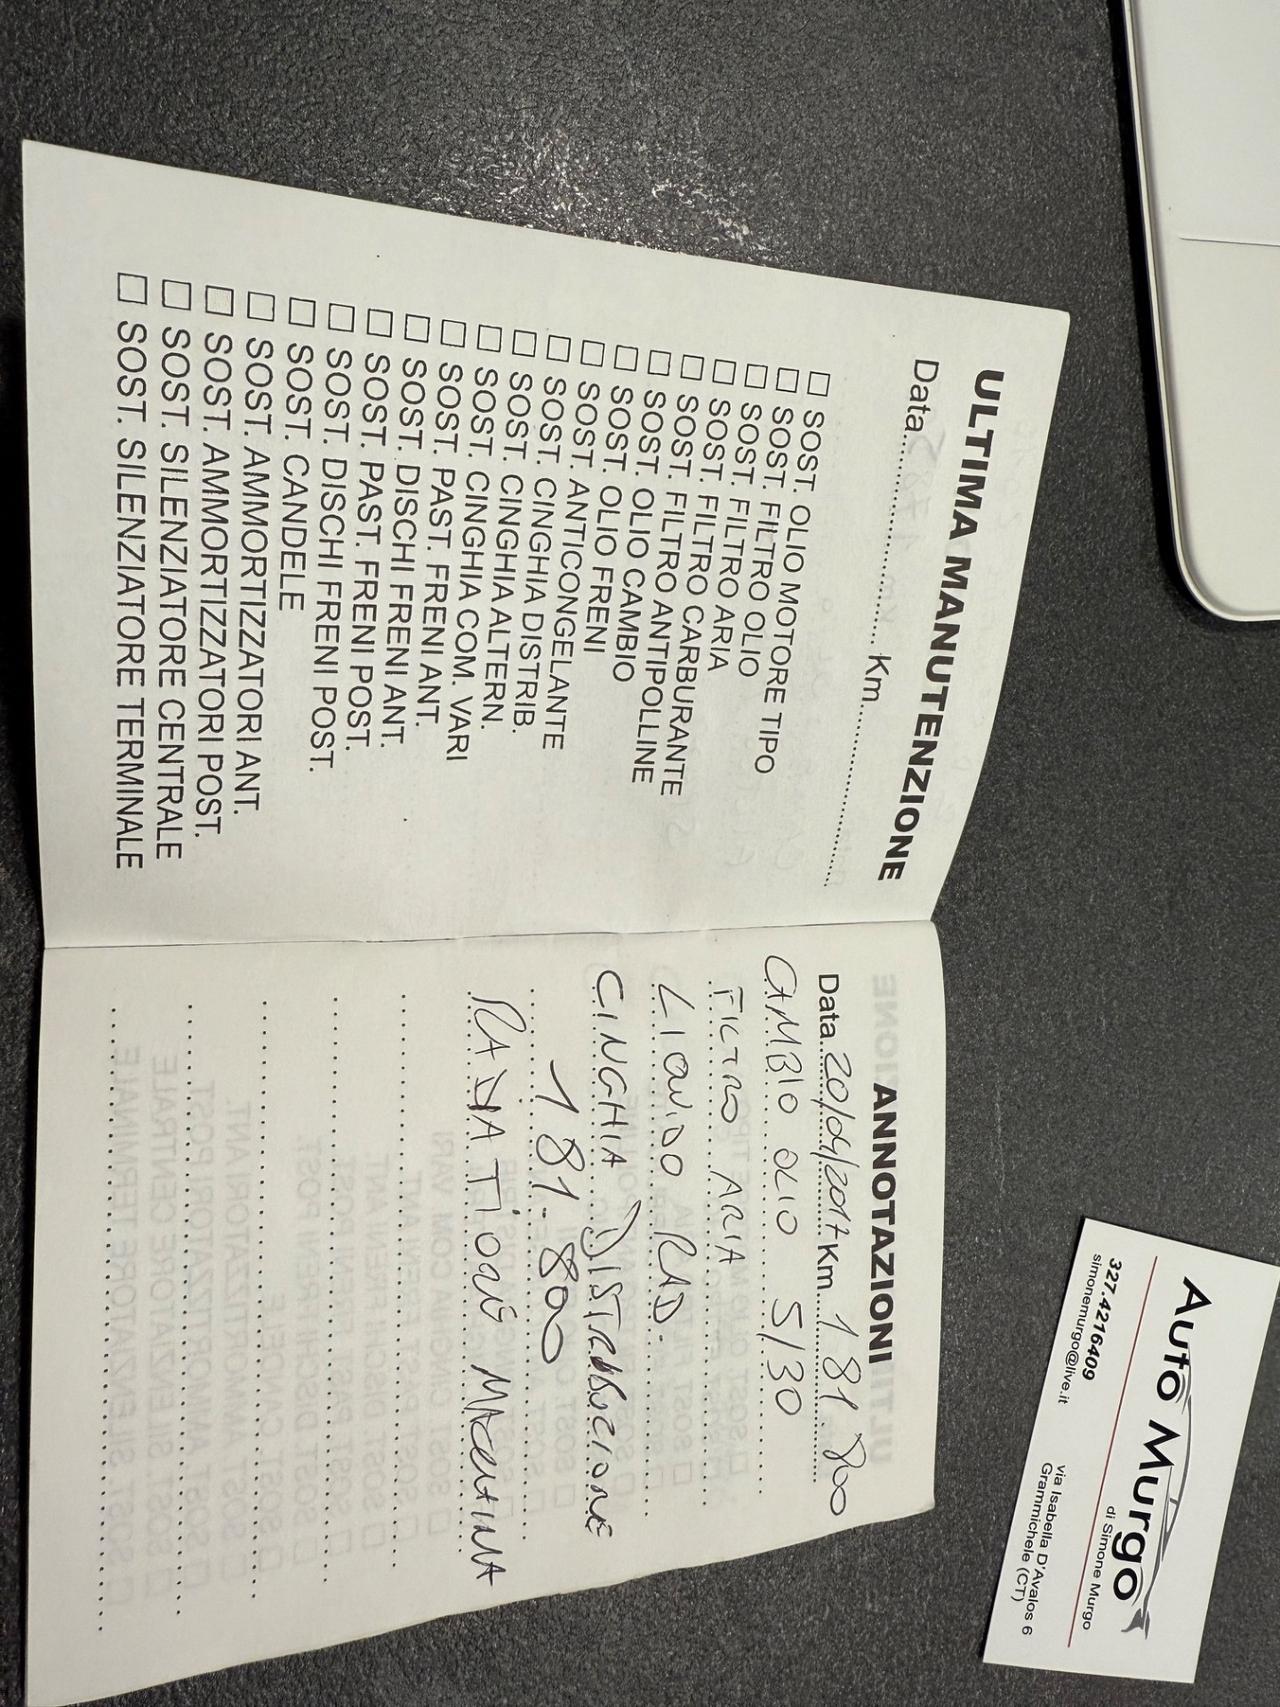 ULTIMA MANUTENZIONE
Data.................... Km....................
☐ SOST. OLIO MOTORE TIPO
☐ SOST. FILTRO OLIO
☐ SOST. FILTRO ARIA
☐ SOST. FILTRO CARBURANTE
☐ SOST. FILTRO ANTIPOLLINE
☐ SOST. OLIO CAMBIO
☐ SOST. OLIO FRENI
☐ SOST. ANTICONGELANTE
☐ SOST. CINGHIA DISTRIB.
☐ SOST. CINGHIA ALTERN.
☐ SOST. CINGHIA COM. VARI
☐ SOST. PAST. FRENI ANT.
☐ SOST. DISCHI FRENI ANT.
☐ SOST. PAST. FRENI POST.
☐ SOST. DISCHI FRENI POST.
☐ SOST. CANDELE
☐ SOST. AMMORTIZZATORI ANT.
☐ SOST. AMMORTIZZATORI POST.
☐ SOST. SILENZIATORE CENTRALE
☐ SOST. SILENZIATORE TERMINALE
ANNOTAZIONI
Data 20/04/2017 Km 181.800
CAMBIO OLIO 5/30
FILTRO ARIA
LIQUIDO RAD.
CINGHIA DISTRIBUZIONE
181.800
MACCHINA
Auto Murgo
di Simone Murgo
327.4216409
simonemurgo@live.it
via Isabella D'Avalos 6
Grammichele (CT)